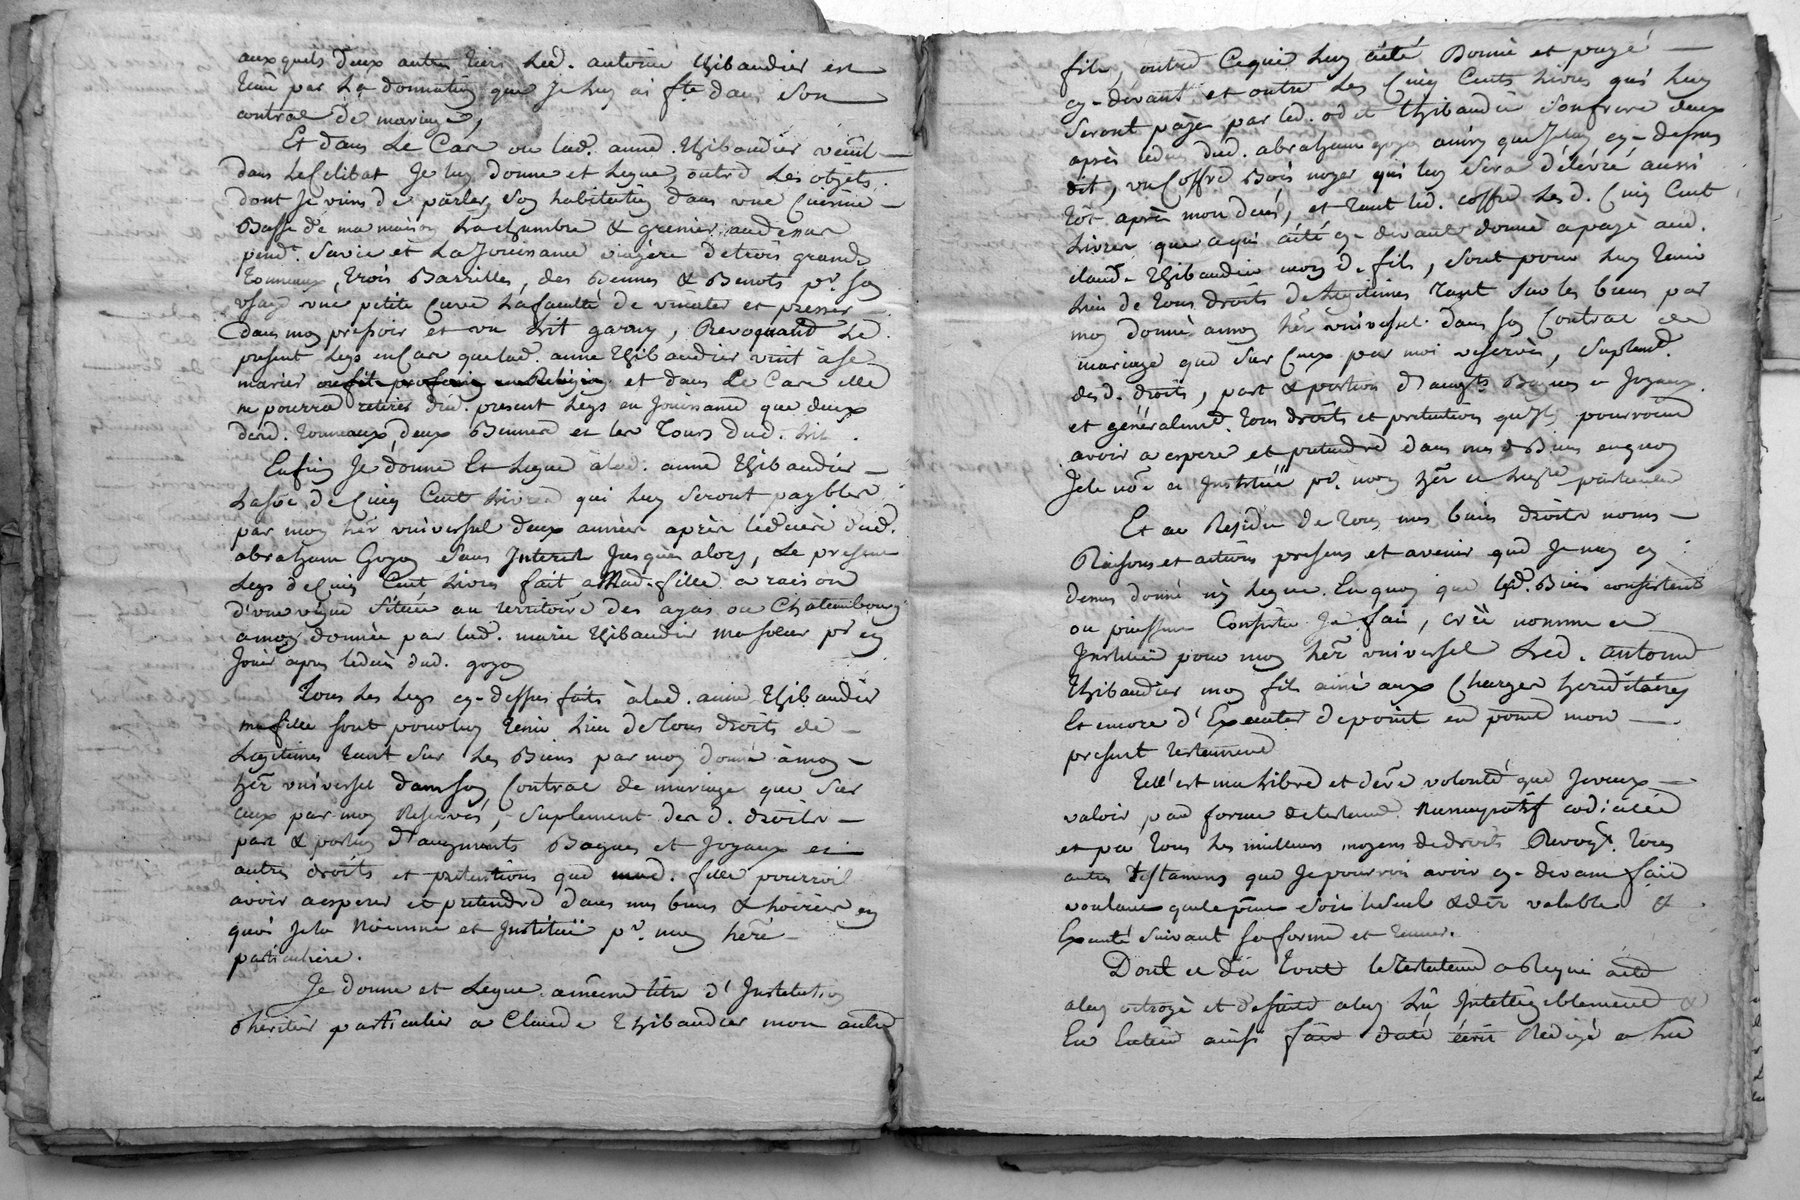 auxquels deux autres tiers led. antoine thibaudier est
tenu par la donnation que Je luy ai fte dans son
contrat de mariage,
Et dans le Cas ou lad. anne thibaudier vécut
dans le Celibat Je luy donne et Legue, outre les objets
dont Je viens de parler, son habitation dans une Cuisine
Basse de ma maison La chambre & grenier au dessus
pendt. sa vie et La Jouissance viagère de trois grands
Tonneaux, trois Barrilles, des Bennes & Benots pr. son
usage une petite Cuve la faculté de vinater et presser
dans mon pressoir et un Lit garny, Revoquant Le
present Legs en Cas que lad. anne thibaudier vint à se
marier et dans Le Cas elle
ne pourra retirer dud. present Legs en Jouissance que deux
desd. Tonneaux, deux Bennes et les Tours dud. Lit.
Enfin Je donne Et Legue à lad. anne thibaudier
La soe de Cinq Cent Livres qui luy seront payables
par mon her universel deux années après le décès dud.
abraham Goyon sans Interet Jusques alors, Le present
Legs de Cinq Cent Livres fait a Mad. fille a raison
d'une vigne située au territoire des ayas ou Chatembourg
a moy donnée par lad. marie thibaudier ma soeur pr en
Jouir apres le décès dud. goyon
Tous les Legs cy-dessus faits à lad. anne thibaudier
ma fille sont pour luy tenir Lieu de tous droits de
Legitimes tant sur les Biens par moy donné à mon
her universel dans son Contrat de mariage que sur
ceux par moy Reservés, suplement desd. droits
part & portion d'augments Bagues et Joyaux et
autres droits et pretentions que mad. fille pourroit
avoir a esperer et pretendre dans mes biens & hoiries en
quoi Je la nomme et Institue pr. mon here
particulière.
Je donne et Legue a même titre d'Institution
d'heritier particulier a Claude thibaudier mon autre
fils, outre Ce qui luy a été Donné et payé
cy-devant et outre Les Cinq Cents Livres qui luy
seront payé par led. odet thibaudier son frere deux
après le deces dud. abraham goyon ainsy que J'ay cy-dessus
dit, un Coffre Bois noyer qui luy sera délivré aussi
tôt après mon deces, et tant led. coffre Les d. Cinq Cent
Livres que ce qui a été cy-devant donné a payé aud.
claude thibaudier mon d. fils, sont pour luy tenir
Lieu de tous droits de Legitimes tant sur les biens par
moy donné a mon her universel dans son Contrat de
mariage que sur Ceux par moi reservés, suplemt.
desd. droits, part & portion d'augts. Bagues et Joyaux
et généralemt. tous droits et pretentions qu'il pourroient
avoir a esperer et pretendre dans mes d Biens en quoy
Je le nôe et Institue pr. mon her et Legre particulier
Et au Residu de tous mes biens droits noms
Raisons et actions presens et avenir que Je n'ay cy
dessus donné ny Legue En quoy que lesd. Biens consistent
ou puissent Consister Je fais, créé nomme et
Institue pour mon her universel Led. antoine
thibaudier mon fils ainé aux Charges hereditaires
Et encore d'Executer de point en point mon
present testament
Tell'est ma Libre et dere volonté que Je veux
valoir par forme de testamt nuncupatif codicille
et par tous les meilleurs moyens de droits Revoqt. tous
autres testamens que Je pourrois avoir cy-devant fait
voulant que le pnt soit le seul & der valable &
Executé suivant sa forme et teneur.
Dont et du tout le testateur a Requi acte
a luy octroyé et de suite a luy lu Intelligiblement &
En Entier ainsi fait daté écrit Redigé a lu